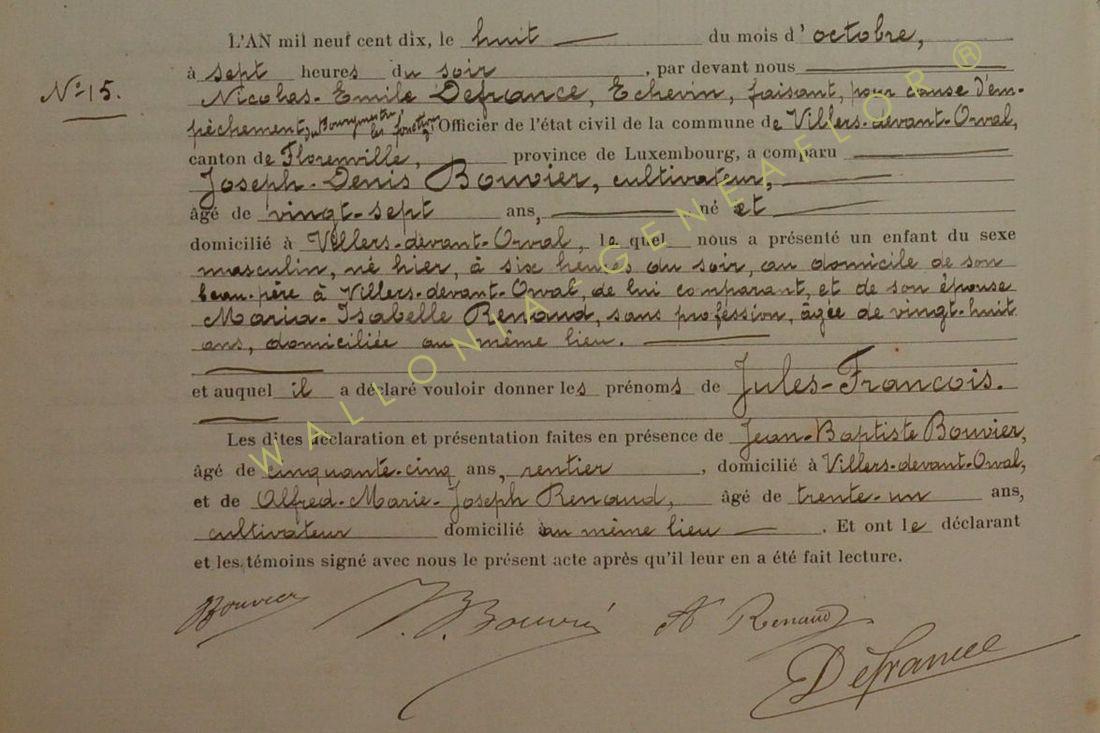 L'AN mil neuf cent dix, le huit du mois d'octobre,
à sept heures du soir, par devant nous
Nº 15.
Nicolas-Emile Defrance, Echevin, faisant, pour cause d'em-
pêchement du Bourgmestre les fonctions d'Officier de l'état civil de la commune de Villers-devant-Orval,
canton de Florenville, province de Luxembourg, a comparu
Joseph-Denis Bouvier, cultivateur,
âgé de vingt-sept ans, né et
domicilié à Villers-devant-Orval, le quel nous a présenté un enfant du sexe
masculin, né hier, à six heures du soir, au domicile de son
beau-père à Villers-devant-Orval, de lui comparant, et de son épouse
Maria-Isabelle Renaud, sans profession, âgée de vingt-huit
ans, domiciliée au même lieu.
et auquel il a déclaré vouloir donner les prénoms de Jules-François.
Les dites déclaration et présentation faites en présence de Jean-Baptiste Bouvier,
âgé de cinquante-cinq ans, rentier, domicilié à Villers-devant-Orval,
et de Alfred-Marie-Joseph Renaud, âgé de trente-un ans,
cultivateur domicilié au même lieu. Et ont le déclarant
et les témoins signé avec nous le présent acte après qu'il leur en a été fait lecture.
Bouvier J. B. Bouvié A Renaud
Défrance
WALLONIA-GENEAFLOR ®